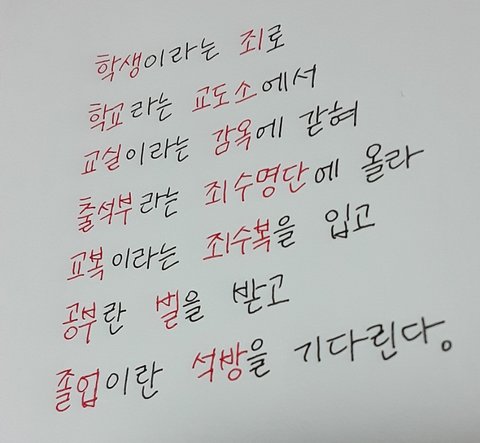 학생이라는 죄로
학교라는 교도소에서
교실이라는 감옥에 갇혀
출석부라는 죄수명단에 올라
교복이라는 죄수복을 입고
공부란 벌을 받고
졸업이란 석방을 기다린다.